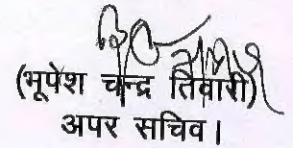 (भूपेश चन्द्र तिवारी)
अपर सचिव।